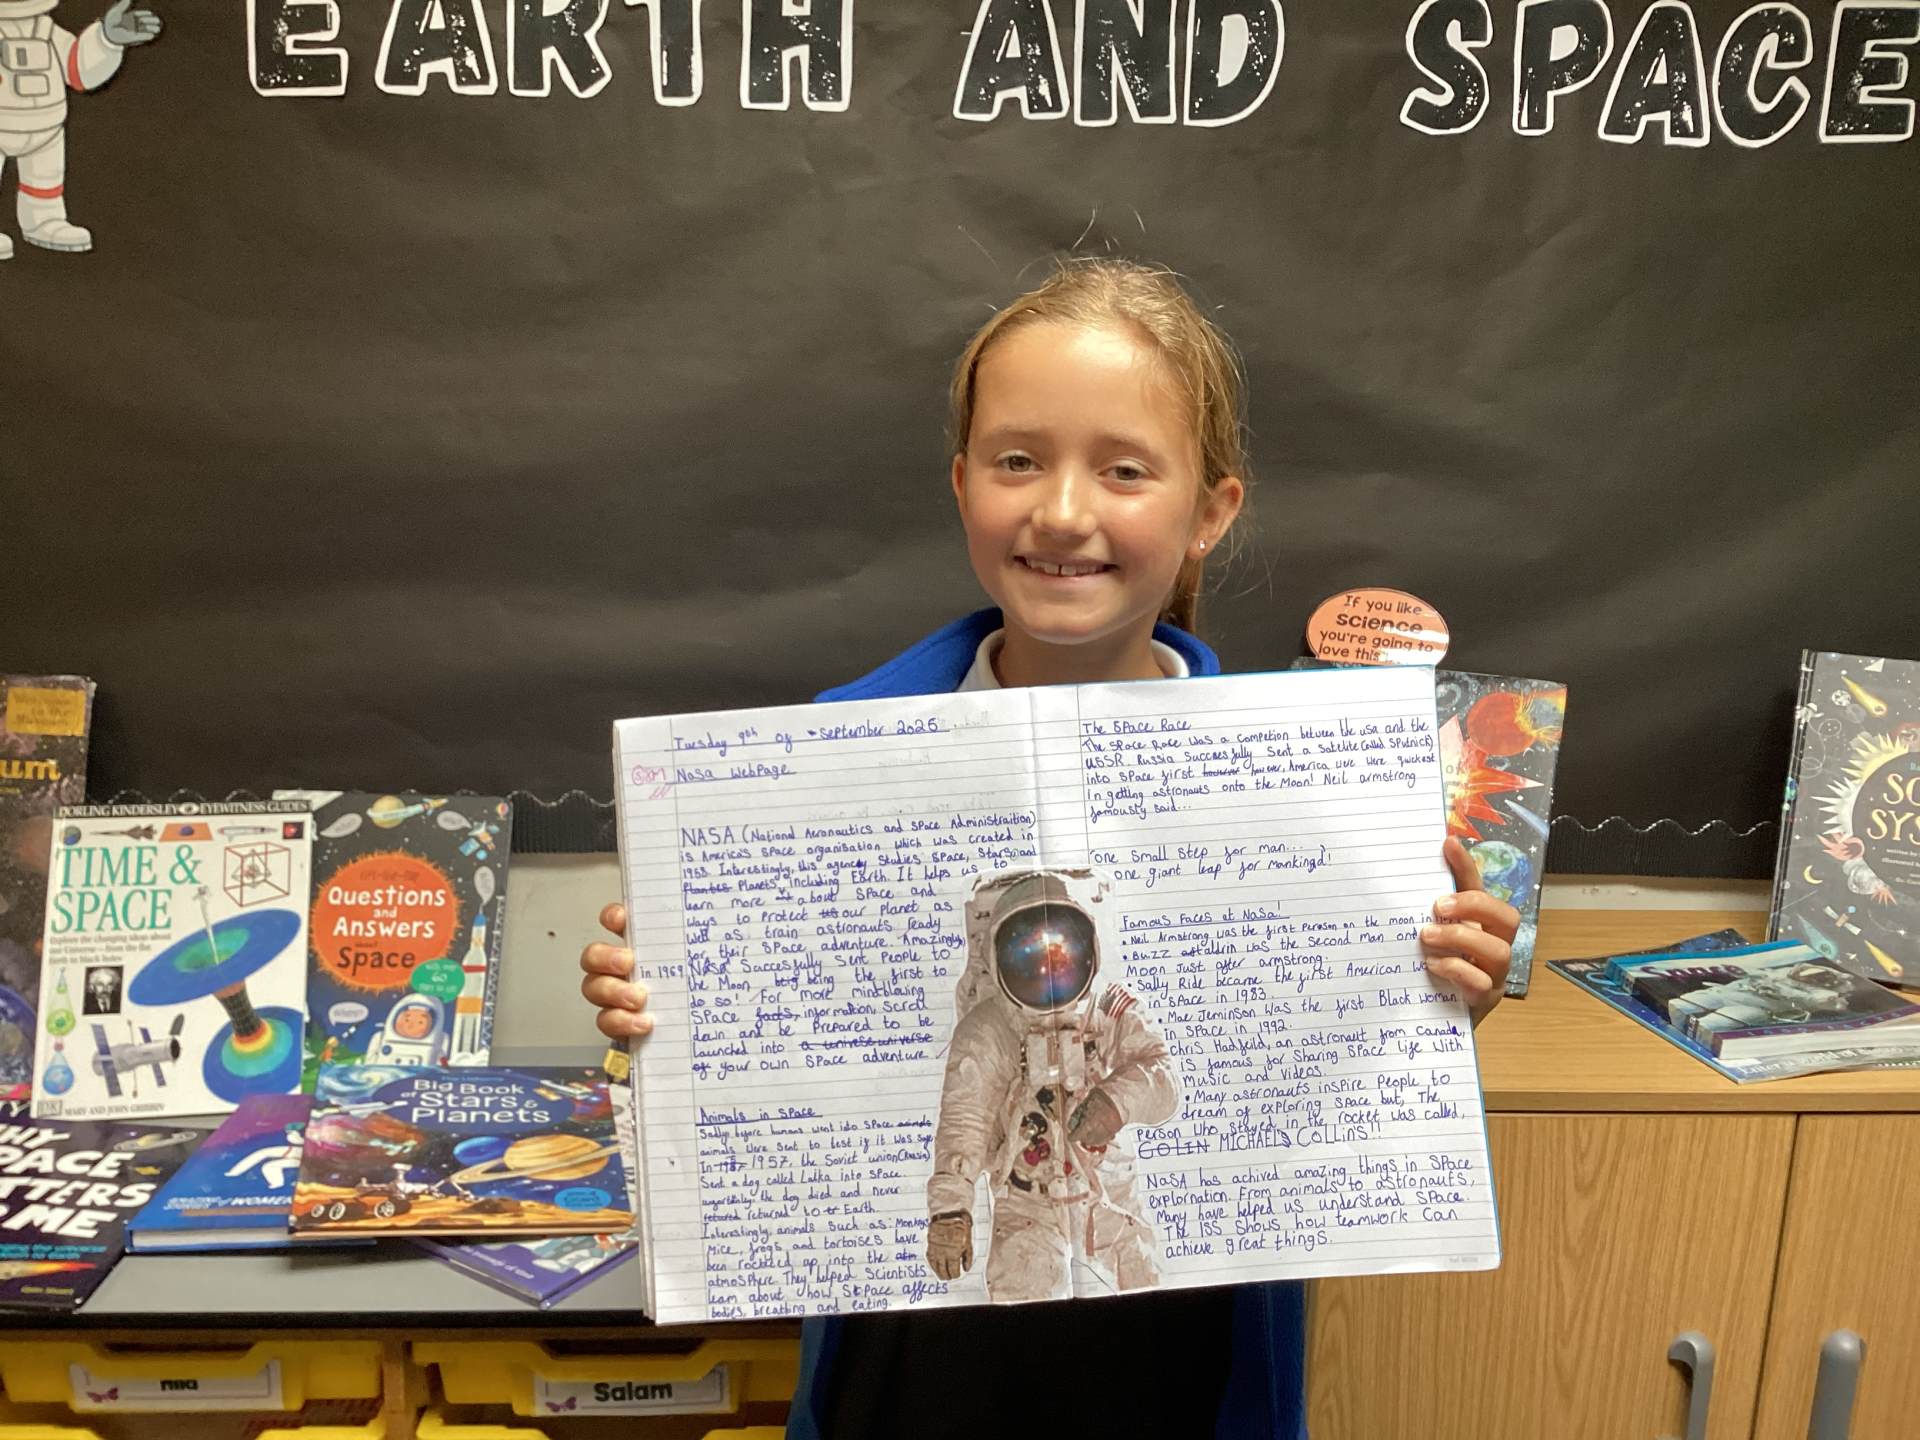 EARTH AND SPACE
If you like
science
you're going to
love this
Tuesday 9th of September 2025
Nasa WebPage
NASA (National Aeronautics and Space Administraition)
is America's space organisation which was created in
1958. Interestingly, this agency studies space, stars and
plantes Planets, including Earth. It helps us to
learn more about space and
ways to protect our planet as
well as train astronauts ready
for their space adventure. Amazingly,
in 1969 Nasa Succesfully sent People to
the Moon being the first to
do so! For more mindblowing
space facts, information, scroll
down and be prepared to be
launched into a univese universe
of your own space adventure.
Animals in space
before humans went into space animals
animals were sent to test if it was safe
In 1957, the Soviet union (Russia)
Sent a dog called Laika into space.
the dog died and never
returned to Earth.
Interestingly, animals such as: Monkeys
Mice, frogs and tortoises have
been rocketed up into the atm
atmosphere. They helped scientists
learn about how space affects
bodies, breathing and eating.
The Space Race
The space Race was a competion between the usa and the
USSR. Russia Succesfully sent a satelite (called Sputnick)
into space first however however, America were quickest
in getting astronauts onto the Moon! Neil armstrong
famously said...
"one small step for man...
one giant leap for mankind!
Famous Faces at Nasa!
• Neil Armstrong was the first person on the moon in
• Buzz aldrin was the second man on
Moon Just after armstrong.
• Sally Ride became the first American
in space in 1983.
• Mae Jeminson was the first Black woman
in space in 1992.
Chris Hadfeild, an astronaut from Canada,
is famous for sharing space life with
music and videos.
• Many astronauts inspire people to
dream of exploring space but, The
person who stayed in the rocket was called,
COLIN MICHAEL COLLINS!!
NASA has achived amazing things in space
explornation. From animals to astronauts,
Many have helped us understand space.
The ISS shows how teamwork can
achieve great things.
DORLING KINDERSLEY EYEWITNESS GUIDES
TIME &
SPACE
Explore the changing ideas about
our Universe – from the flat
Earth to black holes
MARY AND JOHN GRIBBIN
Questions
and
Answers
about
Space
Big Book
of Stars &
Planets
WHY
SPACE
MATTERS
ME
WOMEN
Space
Salam